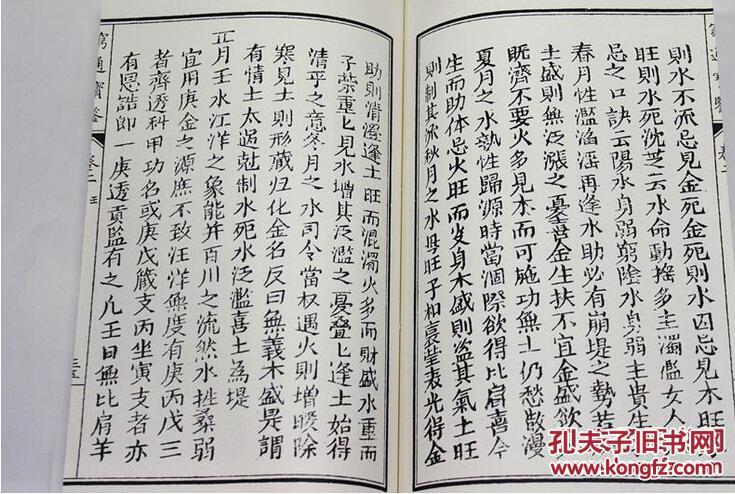 窮通寶鑒
卷二
則水不流忌見金死金死則水囚忌見木旺
旺則水死沈芝云水命動搖多主濁濫女人
忌之口訣云陽水身弱窮陰水身弱主貴生
春月性濫滔淫再逢水助必有崩堤之勢若
土盛則無泛漲之憂喜金生扶不宜金盛欲
既濟不要火多見木而可施功無土仍愁散漫
夏月之水執性歸源時當涸際欲得比肩喜金
生而助体忌火旺而
身木盛則盜其氣土旺
則制其流秋月之水母旺子相裏瑩表光得金
助則清澄逢土旺而混濁火多而財盛水重而
子榮重匕見水增其泛濫之憂叠匕逢土始得
清平之意冬月之水司令當权遇火則增暖除
寒見土則形藏归化金名反曰無義木盛是謂
有情土太過尅制水死水泛濫喜土為堤
正月壬水江洋之象能并百川之流然水
弱
宜用庚金之源庶不致汪洋無度有庚丙戊三
者齊透科甲功名或庚戊藏支丙坐寅支者亦
有恩誥即一庚透貢監有之凡壬日無比肩羊
窮通寶鑒
卷二
壬
三五
孔夫子旧书网
www.kongfz.com